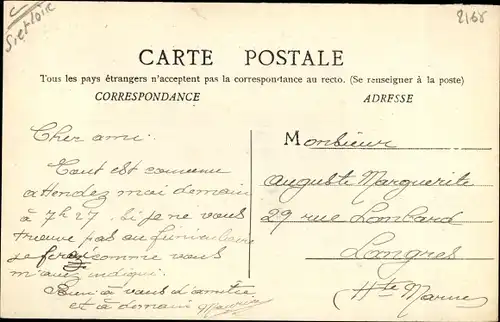 S et Loire
2168
CARTE POSTALE
Tous les pays étrangers n'acceptent pas la correspondance au recto. (Se renseigner à la poste)
CORRESPONDANCE
ADRESSE
Cher ami.
Tout est convenu
attendez moi demain
à 7h 27. Si je ne vous
trouve pas au funiculaire
je ferai comme vous
m'avez indiqué.
à vous d'amitié
et à demain Maurice
Monsieur
Auguste Marguerite
29 rue Lombard
Langres
(Hte Marne)